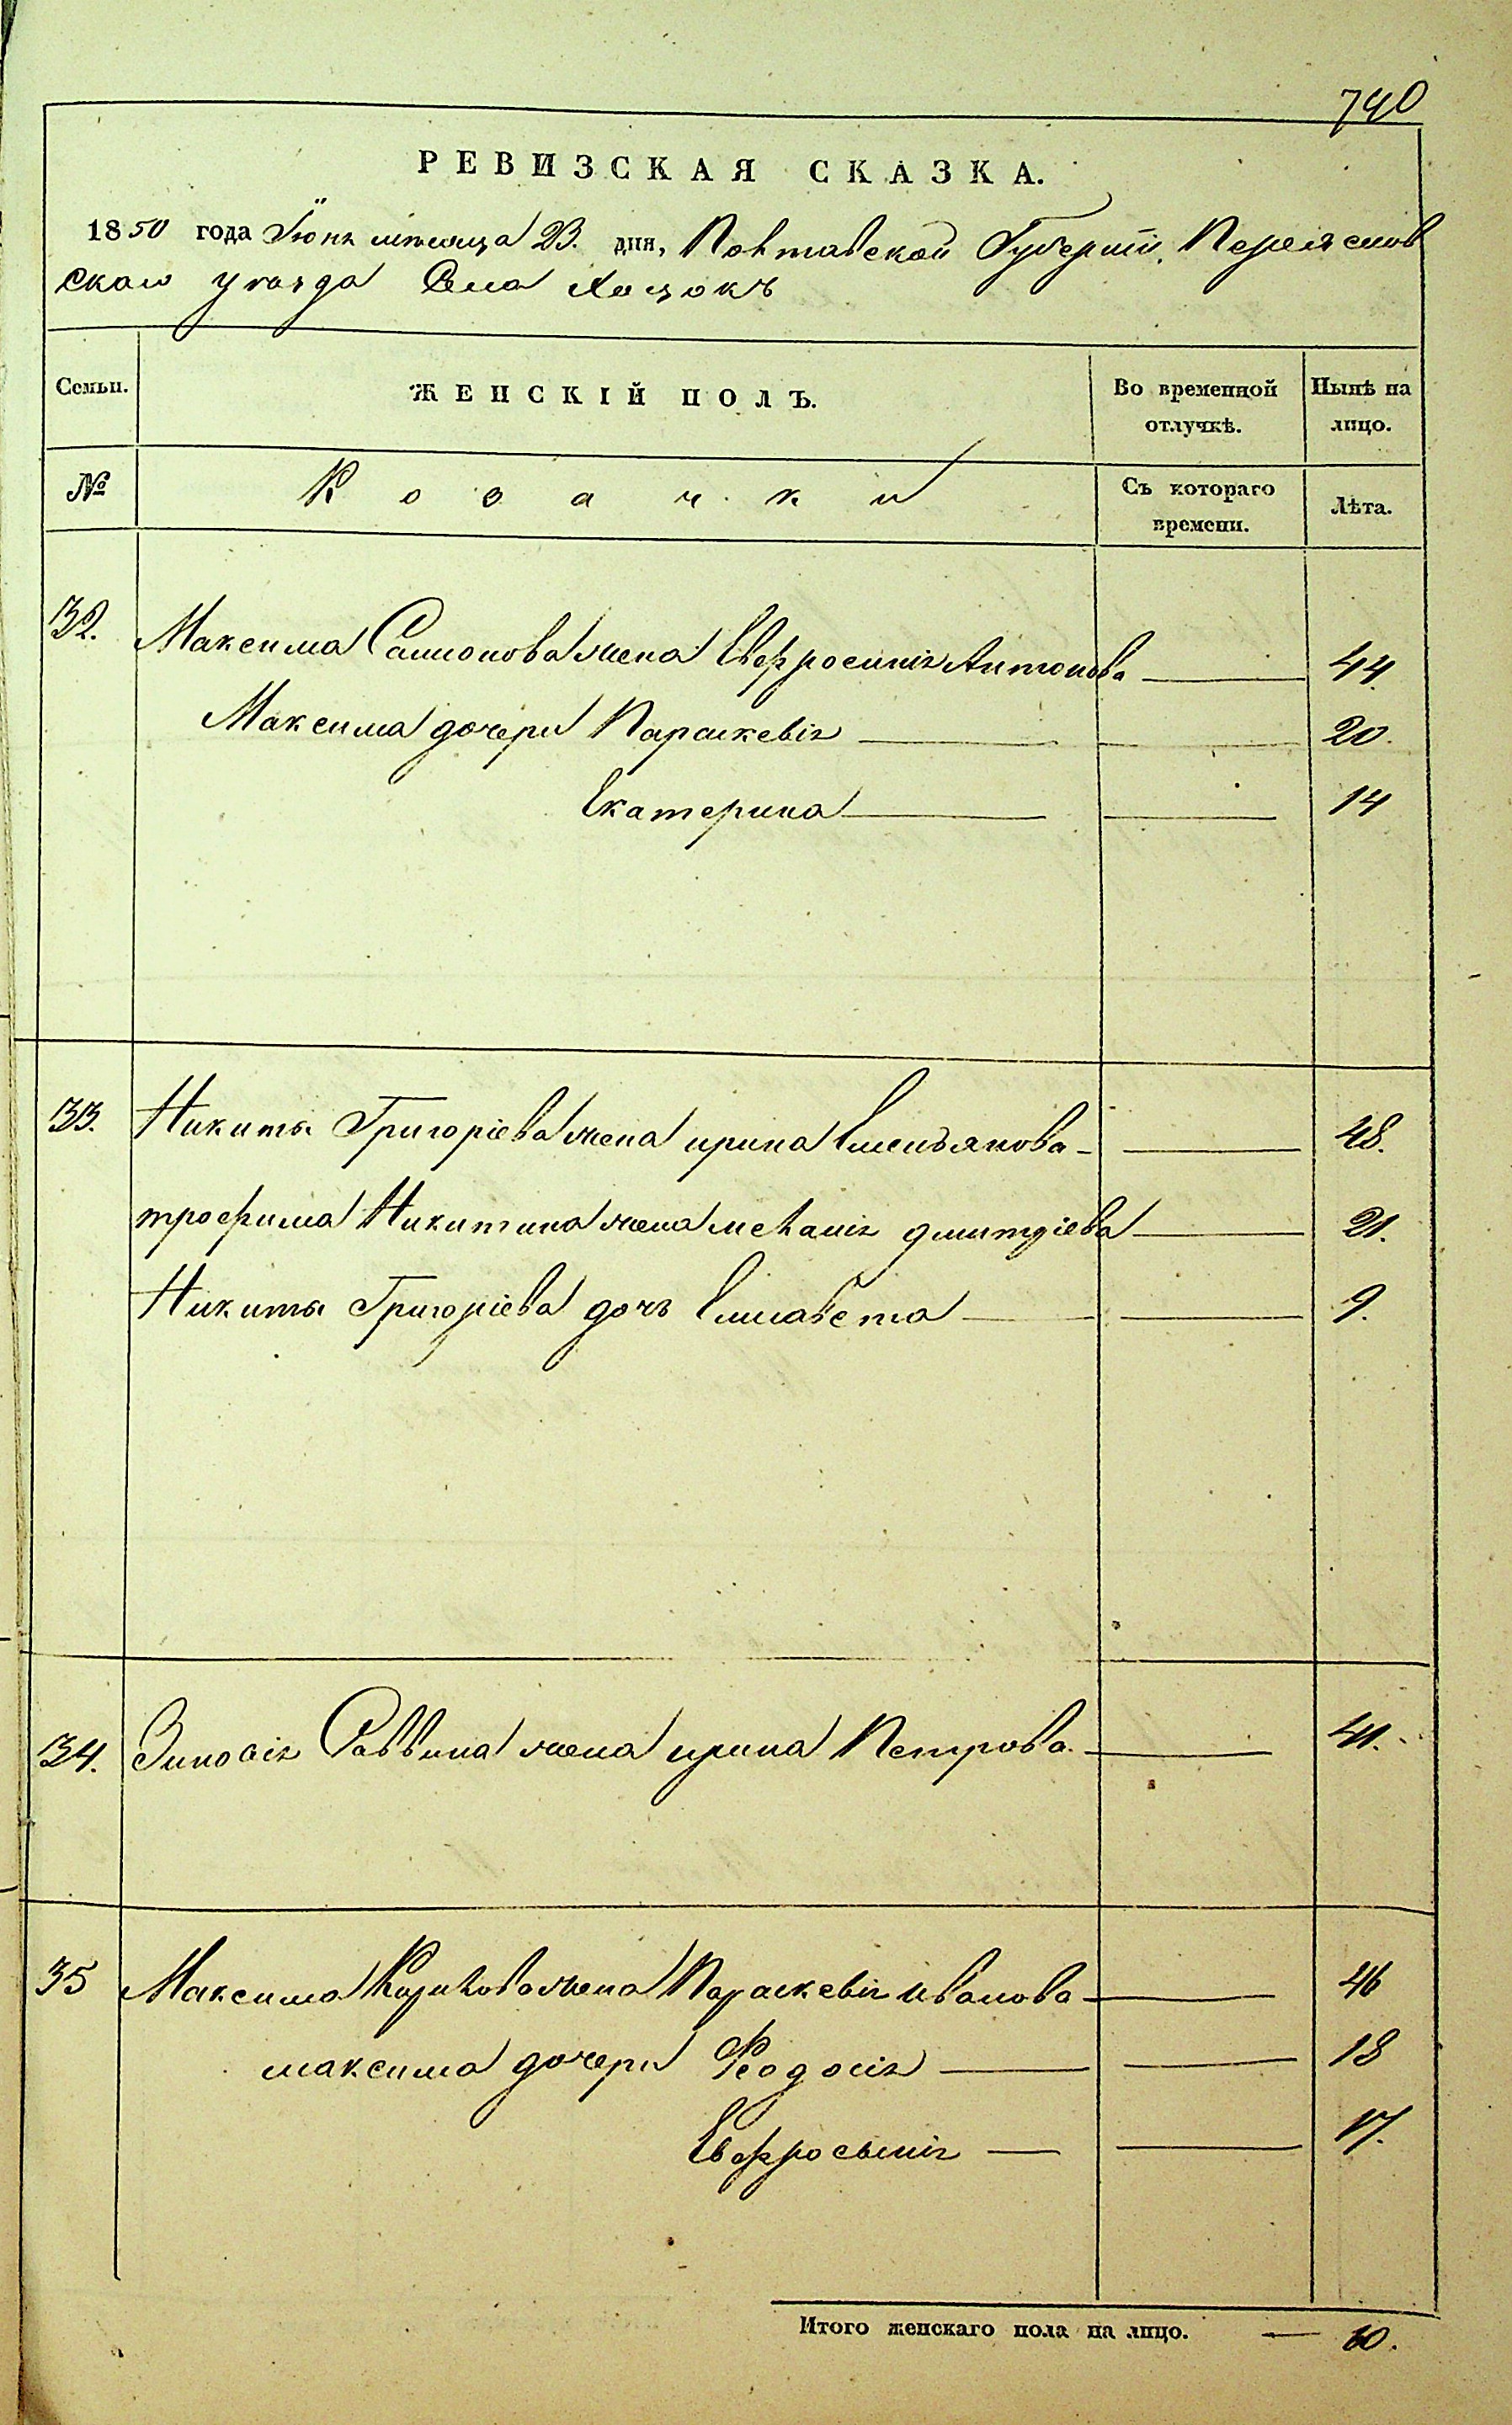 740
РЕВИЗСКАЯ СКАЗКА.
1850 года Іюня мѣсяца 23. дня, Полтавской Губерніи, Переяслов
скаго уѣзда Села Хоцокъ
Семьи. ЖЕНСКІЙ ПОЛЪ. Во временной отлучкѣ. Нынѣ на лицо.
№ Козачки Съ котораго времени. Лѣта.
32. Максима Самсонова жена Евфросинія Антонова 44.
Максима дочери Параскевія 20.
Екатерина 14
33. Никиты Григоріева жена ирина Емельянова 48.
трофима Никитина жена меланія дмитріева 21.
Никиты Григоріева дочь Елисавета 9.
34. Зиновія Саввина жена ирина Петрова 41.
35 Максима жена Параскевія иванова 46
максима дочери Феодосія 18
Евфросинія 17.
Итого женскаго пола на лицо. — 10.